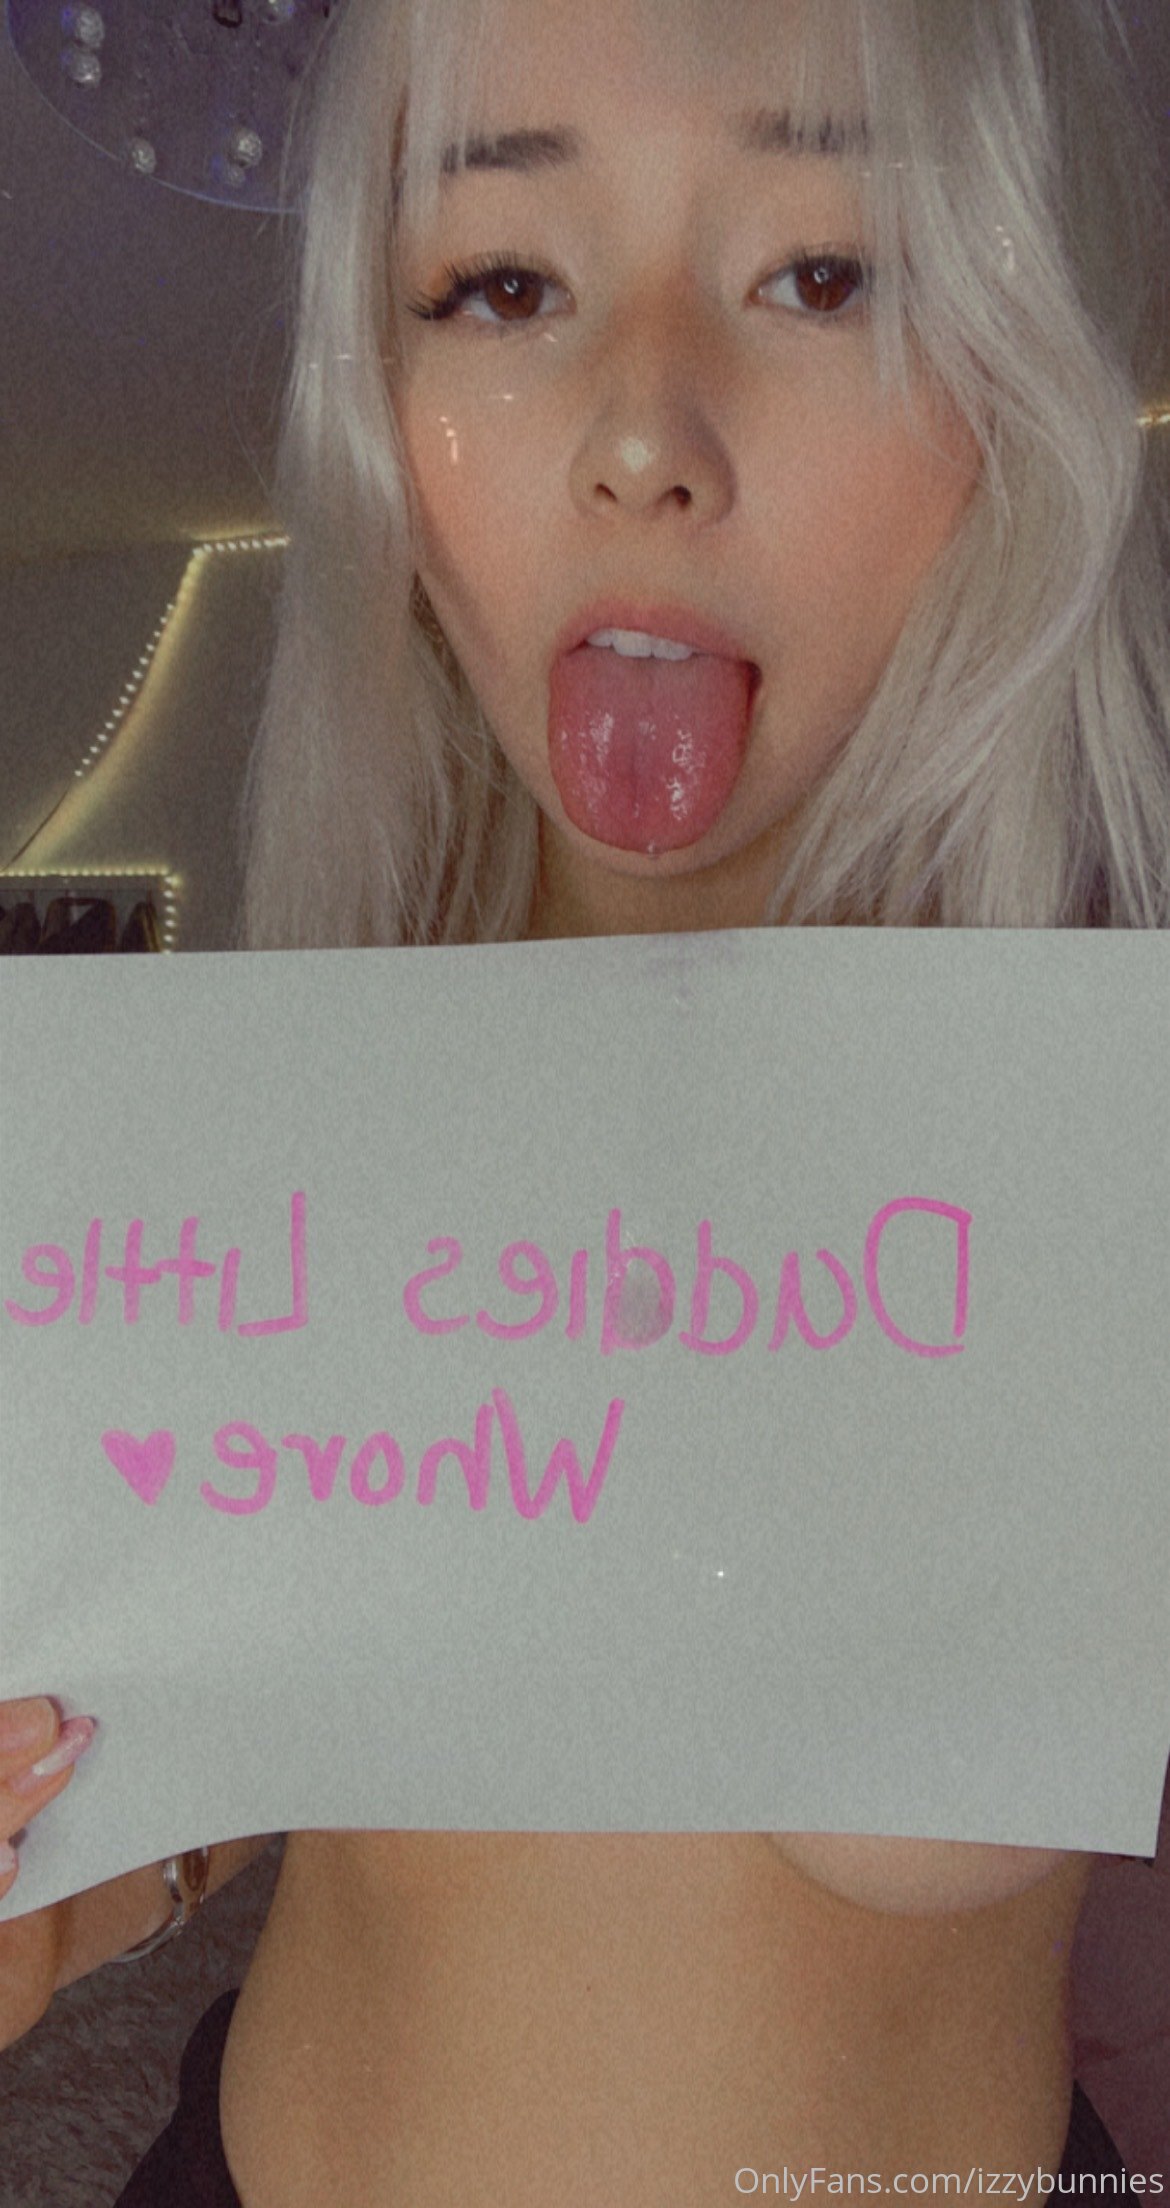 Daddies Little
Whore ♥
OnlyFans.com/izzybunnies